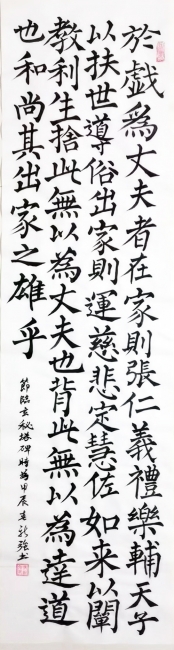 於戲為丈夫者在家則張仁義禮樂輔天子
以扶世導俗出家則運慈悲定慧佐如来以闡
教利生捨此無以為丈夫也背此無以為達道
也和尚其出家之雄乎
節临玄秘塔碑時為甲辰春